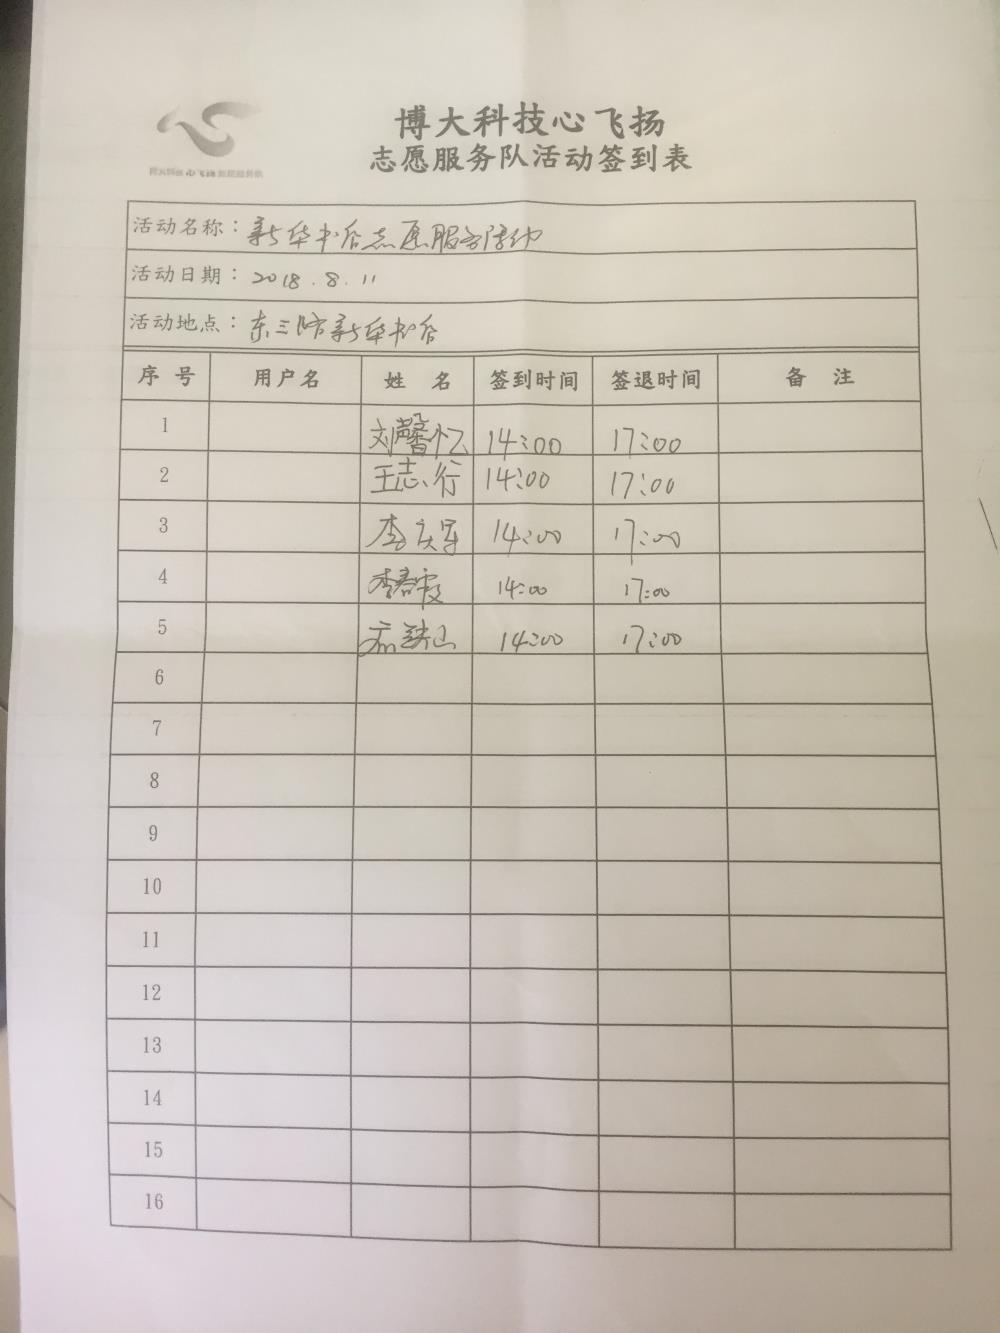 博大科技心飞扬
志愿服务队活动签到表
博大科技心飞扬志愿服务队
活动名称：新华书店志愿服务活动
活动日期：2018.8.11
活动地点：东三路新华书店
序号 用户名 姓名 签到时间 签退时间 备注
1 刘馨忆 14:00 17:00
2 王志行 14:00 17:00
3 李庆军 14:00 17:00
4 李春霞 14:00 17:00
5 14:00 17:00
6
7
8
9
10
11
12
13
14
15
16